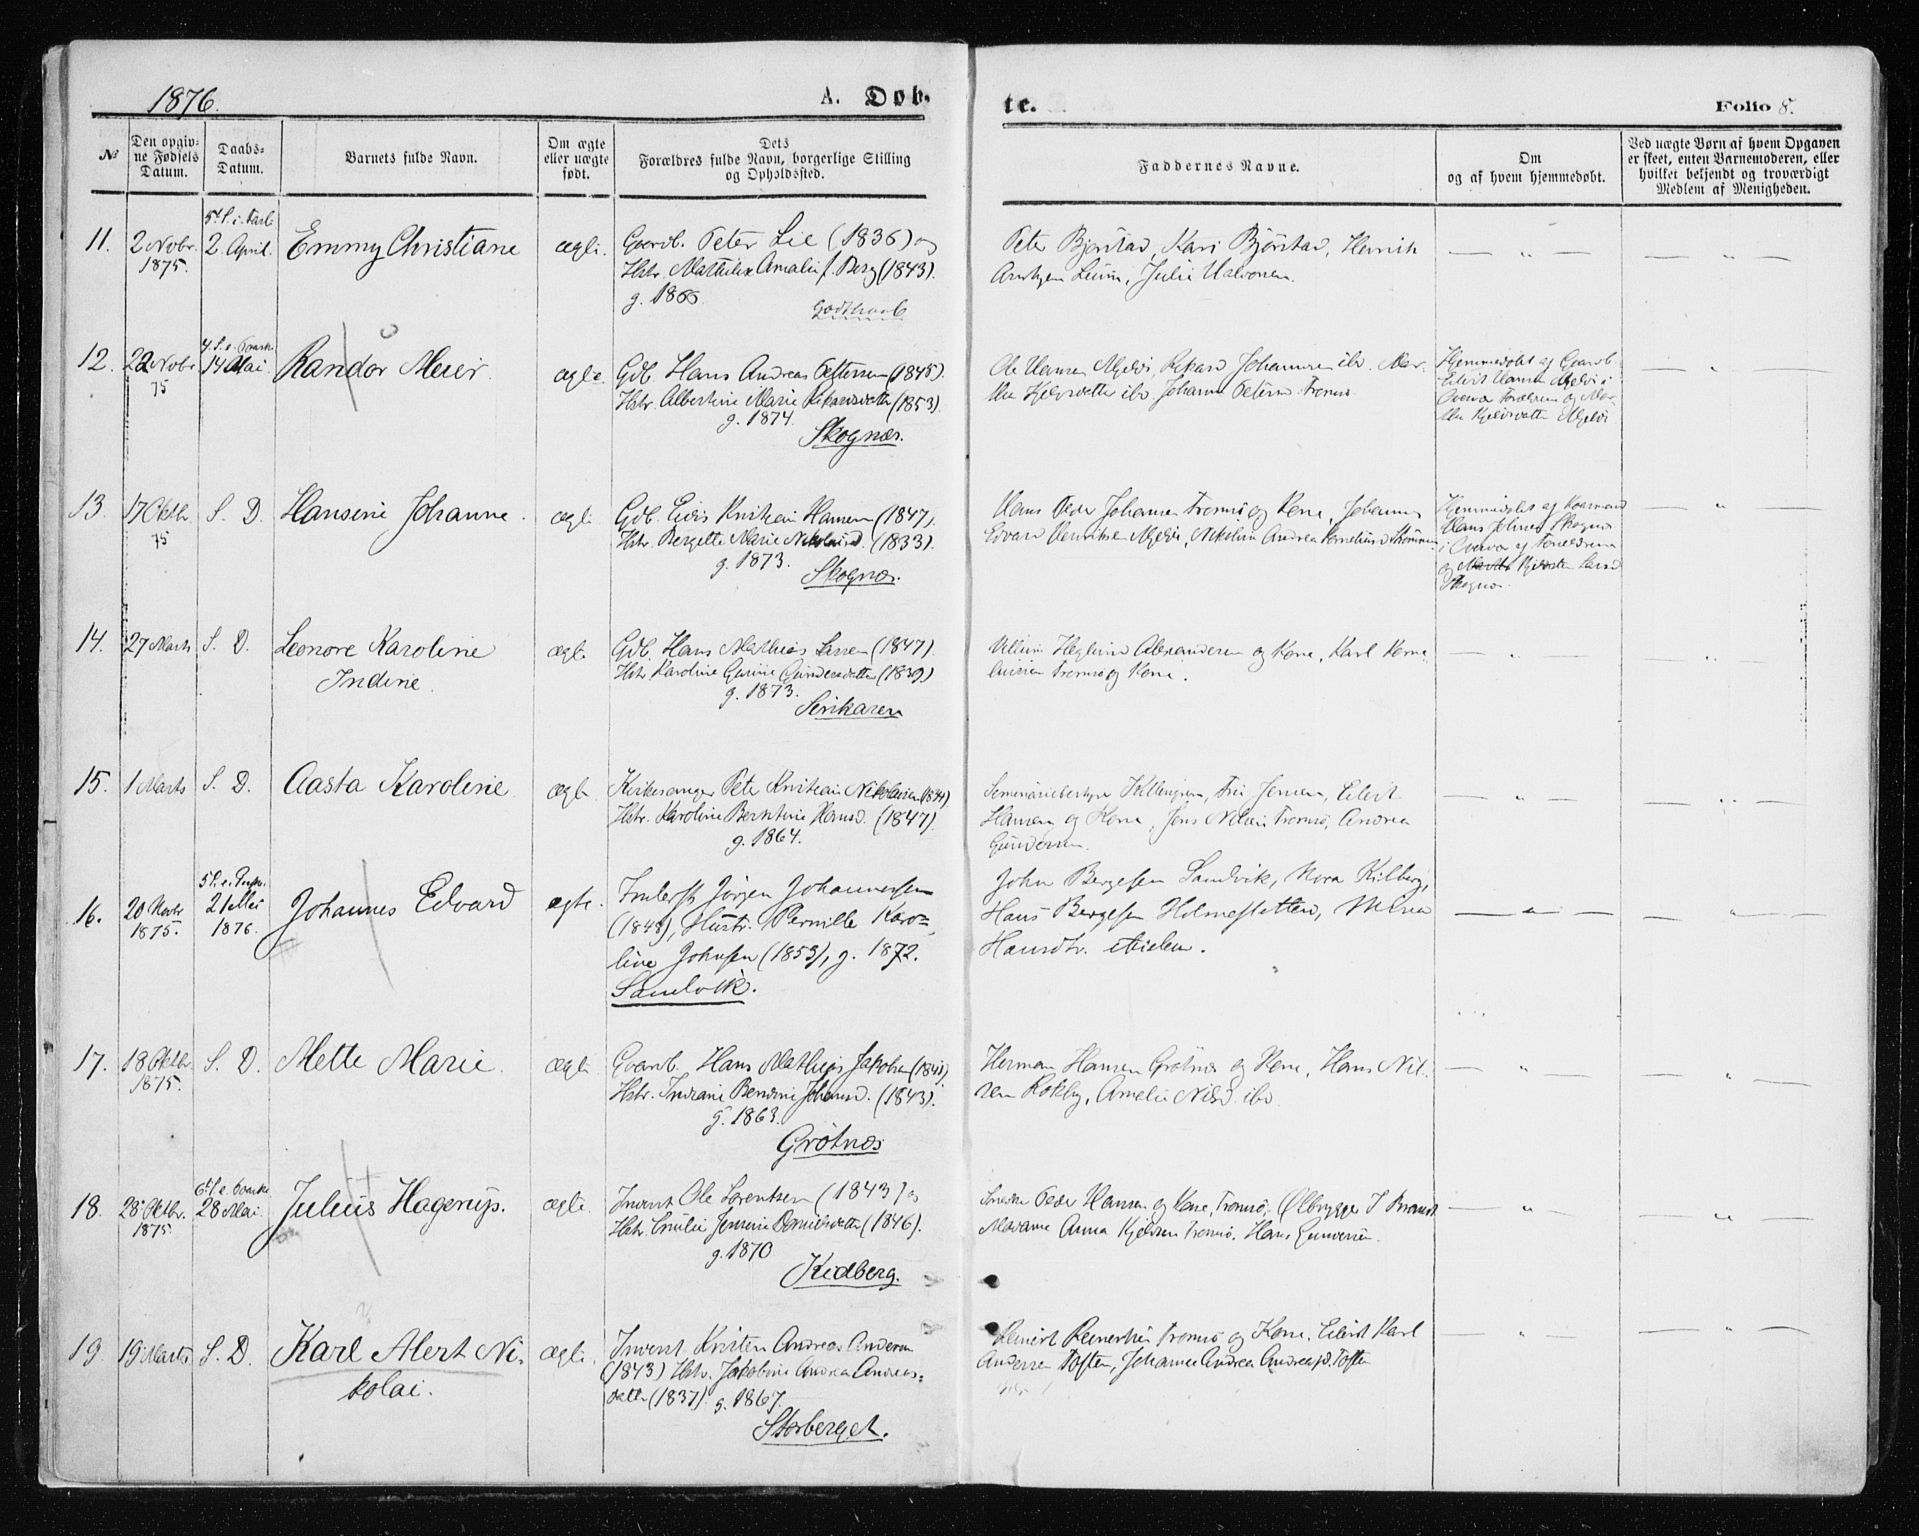 1876.
A. Døb-
te.
Folio 8.
№
Den opgiv-
ne Fødsels
Datum.
Daabs-
Datum.
Barnets fulde Navn.
Om ægte
eller uægte
født.
Dets
Forældres fulde Navn, borgerlige Stilling
og Opholdssted.
Faddernes Navne.
Om
og af hvem hjemmedøbt.
Ved uægte Børn af hvem Opgaven
er skeet, enten Barnemoderen, eller
hvilket bekjendt og troværdigt
Medlem af Menigheden.
11.
2 Novbr.
1875.
2. April.
Emmy Christiane
ægte.
Gaardb. Peter Lie (1836) og
Hstr. Mathilde Amalie f. Berg (1843).
g. 1866
Godthaab
Peter Bjørstad, Kari Bjørstad, Henrik
Julie Halvorsen
12.
22 Novbr
75
14 Mai.
Randor Meier
ægte.
Gdb. Hans Andreas Pettersen (1845).
Hstr. Albertine Marie Rikardsdatter (1853).
g. 1874.
Skognæs.
Ole Hansen Mjelde, Rikard Johannsen ibd. Mar-
the Kjeldsdatter ibd. Johanne Petersen Tromsø
Hjemmedøbt af Gaardb.
Eilert Hansen Mjelde i
Overvær Forældrene og Mar-
the Kjeldsdatter Mjelde
13.
17 Oktbr.
75
S. D.
Hansine Johanne.
ægte
Gdb. Edis Kristian Hansen (1847).
Hstr. Bergette Marie Nikolaid. (1833).
g. 1873.
Skognæs.
Hans Peder Johansen Tromsø og Kone, Johannes
Edvard Henriksen Mjelde, Nikoline Andrea Kornelius d. Strømmen
Hjemmedøbt af
Hans Johnsen Skognæs
i Overvær af Forældrene
og
Skognæs.
14.
27 Marts
S. D.
Leonore Karoline
Indine.
ægte
Gdb. Hans Mathias Larsen (1847).
Hstr. Karoline Gurine Gundersdatter (1839)
g. 1873.
Senkaren
Villum Heglund Alexandersen og Kone, Karl Korne-
liussen Tromsø og Kone.
15.
1 Marts
S. D.
Aasta Karoline
ægte.
Kirkesanger Peter Kristian Nikolaisen (1844)
Hstr. Karoline Berntine Hansd. (1847).
g. 1864.
Seminariebestyrer Killengren, Frk. Jensen, Eilert
Hansen og Kone, Jens Nilsen Tromsø, Andrea
Gundersen.
16.
20 Novbr
1875.
21 Mai
1876.
Johannes Edvard
ægte.
Inderst Jørgen Johannessen
(1848), Hustr. Pernille Karo-
line Johnsen (1853), g. 1872.
Sandvik.
John Bergesen Sandvik, Nora Kilberg,
Hans Bergesen Holmesletten, Mina
Hansdtr.
17.
18 Oktbr
1875.
S. D.
Mette Marie
ægte
Gaardb. Hans Mathias Jakobsen (1841).
Hstr. Indiane Bendine Johansd. (1843).
g. 1863.
Grøtnæs
Herman Hansen Grøtnæs og Kone, Hans Nil-
sen Rokeby, Amelie Nilsd. ibd.
18.
28 Oktbr.
1875.
28 Mai.
Julius Hagerup.
ægte
Inderst Ole Lorentsen (1843) og
Hstr. Emilie Jensine Danielsdatter (1846).
g. 1870
Kidberg.
Snedker Peder Hansen og Kone, Tromsø, Ølbrygger I Brandt
Madame Anna Kjeldsen Tromsø. Hans Gundersen.
19.
19 Marts
S. D.
Karl Alert Ni-
kolai.
ægte.
Inderst Kristen Andreas Andersen
(1843) Hstr. Jakobine Andrea Andreas-
datter (1837). g. 1867.
Storberget.
Reinert Reinertsen Tromsø og Kone, Eilert Karl
Andersen Toften, Johanne Andrea Andreasd. Toften